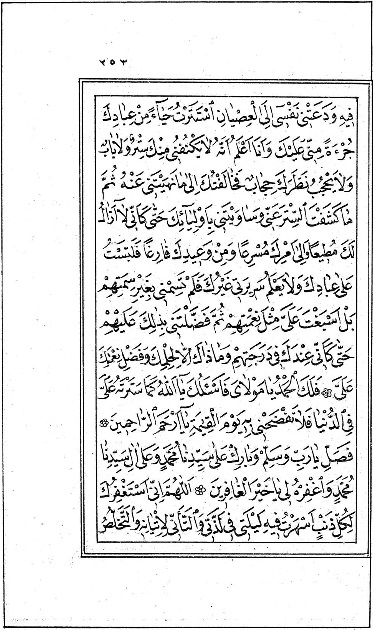 ٢٥٣
فِيهِ وَدَعَتْنِي نَفْسِي إِلَى الْعِصْيَانِ اسْتَتَرْتُ حَيَاءً مِنْ عِبَادِكَ
جُرْءَةً مِنِّي عَلَيْكَ وَأَنَا أَعْلَمُ أَنَّهُ لَا يَكْنُفُنِي مِنْكَ سِتْرٌ وَلَا بَابٌ
وَلَا يَحْجُبُ نَظَرَكَ حِجَابٌ فَخَالَفْتُكَ إِلَى مَا نَهَيْتَنِي عَنْهُ ثُمَّ
مَا كَشَفْتَ السِّتْرَ عَنِّي وَسَاوَيْتَنِي بِأَوْلِيَائِكَ حَتَّى كَأَنِّي لَا أَزَالُ
لَكَ مُطِيعًا وَإِلَى أَمْرِكَ مُسْرِعًا وَمِنْ وَعِيدِكَ فَارِعًا فَلَبَسْتُ
عَلَى عِبَادِكَ وَلَا يَعْلَمُ سَرِيرَتِي غَيْرُكَ فَلَمْ تَسِمْنِي بِغَيْرِ سِمَتِهِمْ
بَلْ أَسْبَغْتَ عَلَيَّ مِثْلَ نِعَمِهِمْ ثُمَّ فَضَّلْتَنِي بِذَلِكَ عَلَيْهِمْ
حَتَّى كَأَنِّي عِنْدَكَ فِي دَرَجَتِهِمْ وَمَا ذَاكَ إِلَّا لِحِلْمِكَ وَفَضْلِ نِعْمَتِكَ
عَلَيَّ فَلَكَ الْحَمْدُ يَا مَوْلَايَ فَأَسْئَلُكَ يَا اللهُ كَمَا سَتَرْتَهُ عَلَيَّ
فِي الدُّنْيَا فَلَا تَفْضَحْنِي بِهِ يَوْمَ الْقِيٰمَةِ يَا أَرْحَمَ الرَّاحِمِينَ
فَصَلِّ يَا رَبِّ وَسَلِّمْ وَبَارِكْ عَلَى سَيِّدِنَا مُحَمَّدٍ وَعَلَى آلِ سَيِّدِنَا
مُحَمَّدٍ وَاغْفِرْهُ لِي يَا خَيْرَ الْغَافِرِينَ اللّٰهُمَّ إِنِّي أَسْتَغْفِرُكَ
لِكُلِّ ذَنْبٍ أَسْهَرْتُ فِيهِ لَيْلَتِي فِي لَذَّتِي وَالتَّأَنِّي لِإِتْيَانِهِ وَالتَّخَلُّصِ